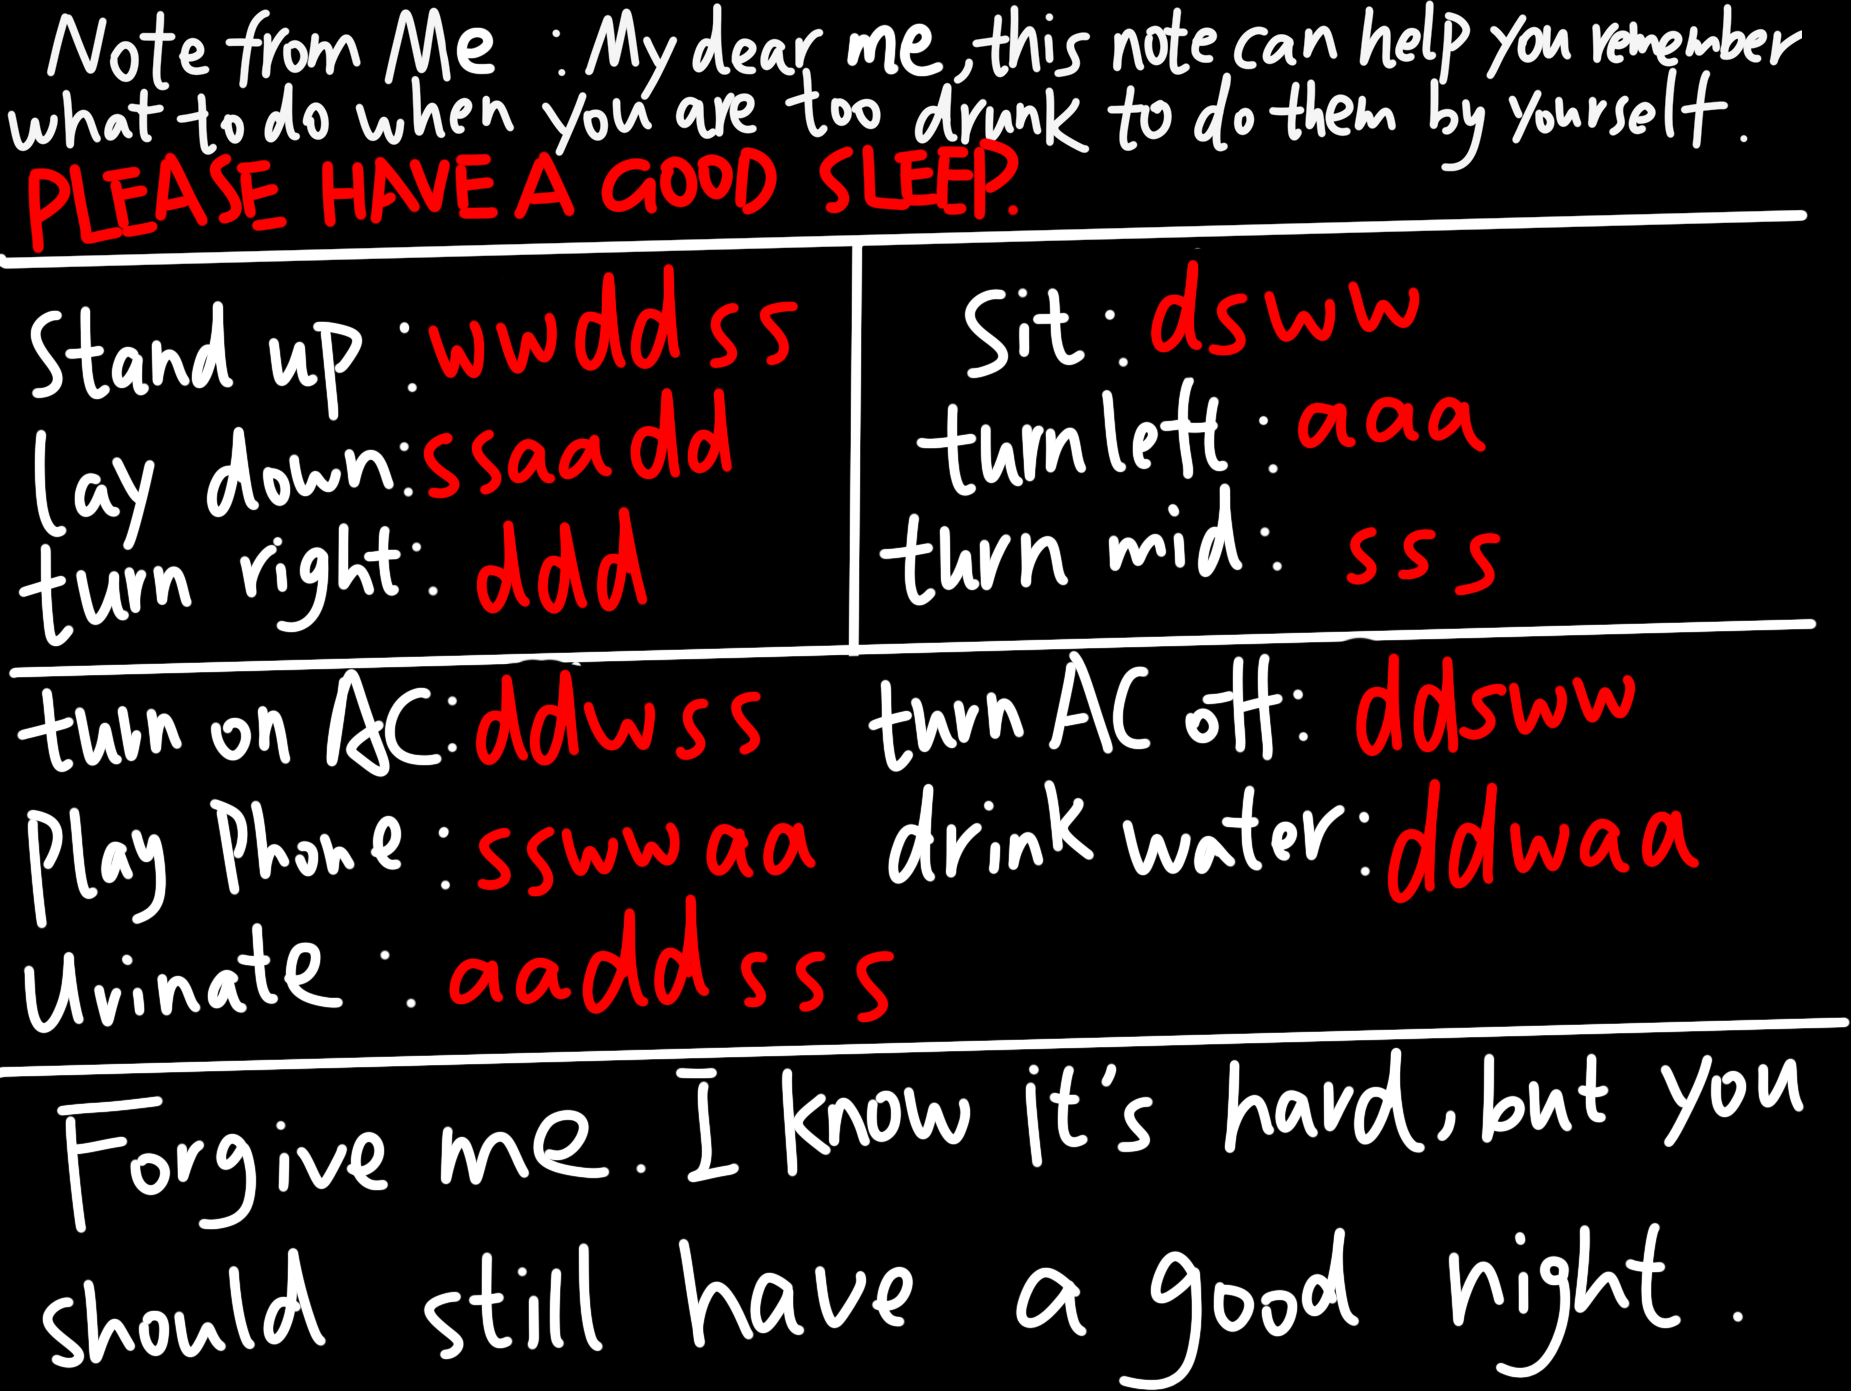 Note from Me : My dear me, this note can help you remember
what to do when you are too drunk to do them by yourself.
PLEASE HAVE A GOOD SLEEP.
Stand up : wwddss
Lay down: ssaadd
turn right: ddd
Sit: dsww
turn left: aaa
turn mid: sss
turn on AC: ddwss turn AC off: ddsww
Play Phone: sswwaa drink water: ddwaa
Urinate : aaddsss
Forgive me. I know it's hard, but you
should still have a good night.